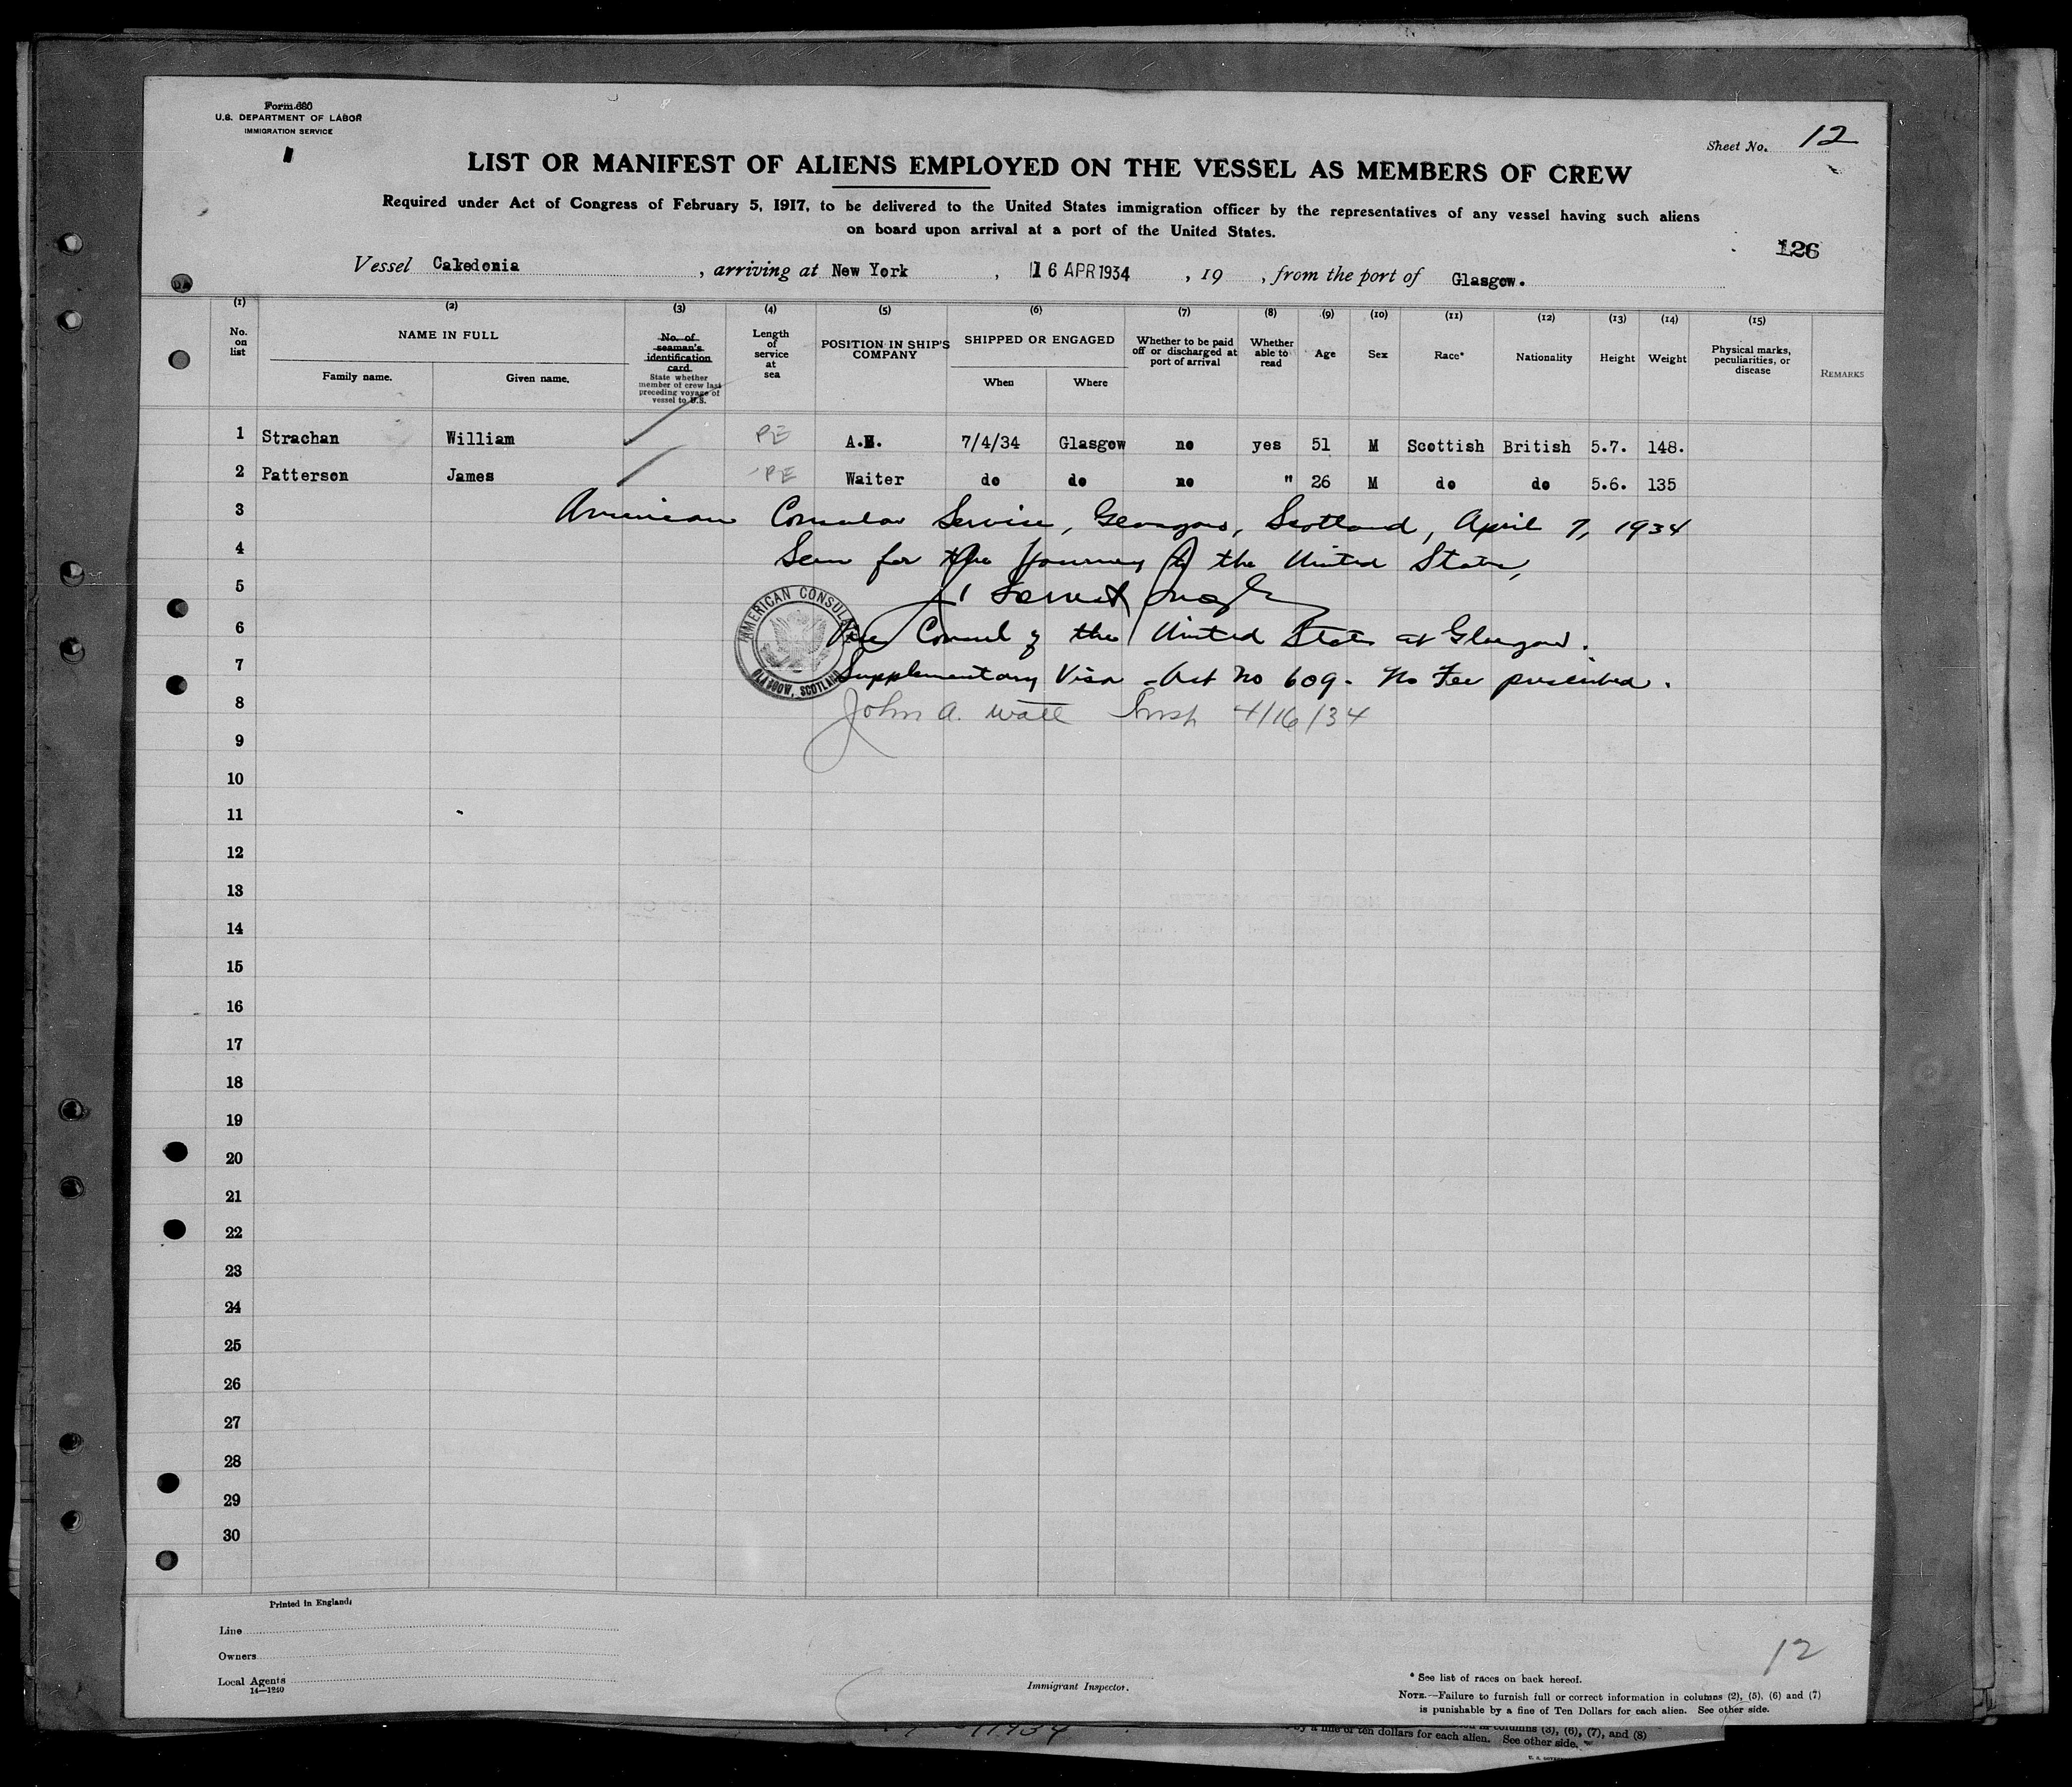 Form 680
U.S. DEPARTMENT OF LABOR
IMMIGRATION SERVICE
Sheet No. 12
LIST OR MANIFEST OF ALIENS EMPLOYED ON THE VESSEL AS MEMBERS OF CREW
Required under Act of Congress of February 5, 1917, to be delivered to the United States immigration officer by the representatives of any vessel having such aliens
on board upon arrival at a port of the United States.
126
Vessel Cakedonia , arriving at New York , 16 APR 1934 , 19 , from the port of Glasgow.
(1) (2) (3) (4) (5) (6) (7) (8) (9) (10) (11) (12) (13) (14) (15)
No. on list
NAME IN FULL
Family name. Given name.
No. of seaman's identification card
State whether member of crew last preceding voyage of vessel to U.S.
Length of service at sea
POSITION IN SHIP'S COMPANY
SHIPPED OR ENGAGED
When Where
Whether to be paid off or discharged at port of arrival
Whether able to read
Age
Sex
Race*
Nationality
Height
Weight
Physical marks, peculiarities, or disease
REMARKS
1 Strachan William PE A.B. 7/4/34 Glasgow no yes 51 M Scottish British 5.7. 148.
2 Patterson James PE Waiter do do no " 26 M do do 5.6. 135
3 American Consular Service, Glasgow, Scotland, April 7, 1934
4 Seen for the Journey to the United States,
5
6 Vice Consul of the United States at Glasgow.
7 Supplementary Visa - Art No 609 - No Fee prescribed.
8 John A. Watt Insp 4/16/34
AMERICAN CONSULATE
GLASGOW, SCOTLAND
9
10
11
12
13
14
15
16
17
18
19
20
21
22
23
24
25
26
27
28
29
30
Printed in England
Line
Owners
Local Agents
14—1240
Immigrant Inspector.
12
* See list of races on back hereof.
NOTE.—Failure to furnish full or correct information in columns (2), (5), (6) and (7)
is punishable by a fine of Ten Dollars for each alien. See other side.
columns (3), (6), (7), and (8)
by a fine of ten dollars for each alien. See other side.